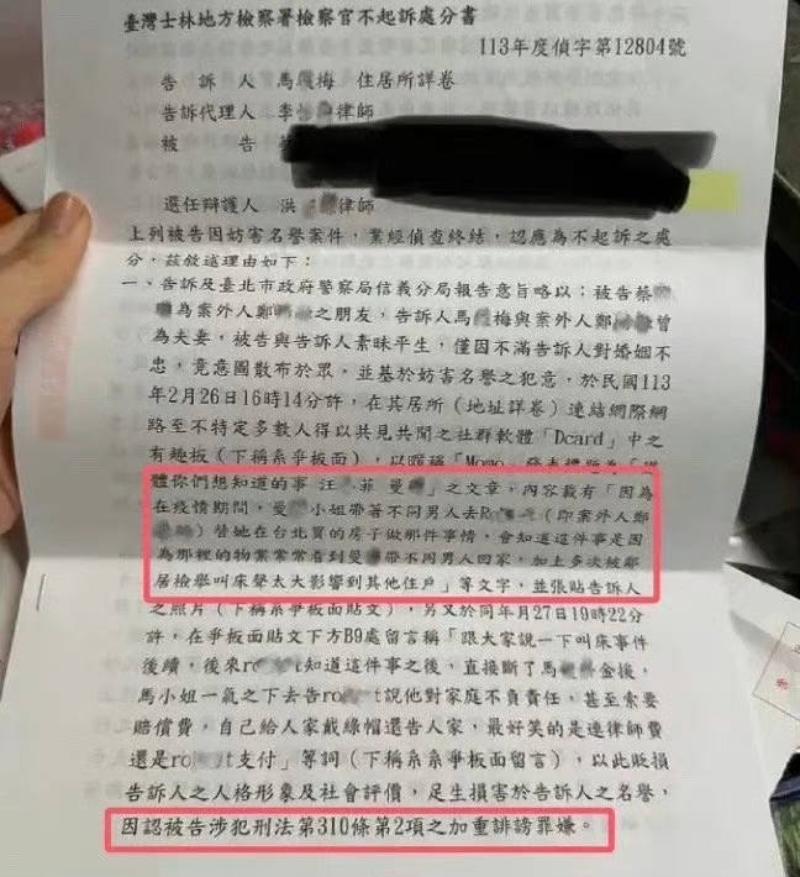 臺灣士林地方檢察署檢察官不起訴處分書
113年度偵字第12804號
告訴人 馬 梅 住居所詳卷
告訴代理人 李 律師
被告
選任辯護人 洪 律師
上列被告因妨害名譽案件,業經偵查終結,認應為不起訴之處
分,茲敘述理由如下:
一、告訴及臺北市政府警察局信義分局報告意旨略以:被告蔡
為案外人鄭 之朋友,告訴人馬 梅與案外人鄭 曾
為夫妻,被告與告訴人素昧平生,僅因不滿告訴人對婚姻不
忠,竟意圖散布於眾,並基於妨害名譽之犯意,於民國113
年2月26日16時14分許,在其居所(地址詳卷)連結網際網
路至不特定多數人得以共見共聞之社群軟體「Dcard」中之
有趣板(下稱系爭板面),以暱稱「Momo」發表標題為「
體你們想知道的事 汪 菲 曼 」之文章,內容載有「因為
在疫情期間,曼 小姐帶著不同男人去R (即案外人鄭
)替她在台北買的房子做那件事情,會知道這件事是因
為那裡的物業常常看到曼 帶不同男人回家,加上多次被鄰
居檢舉叫床聲太大影響到其他住戶」等文字,並張貼告訴人
之照片(下稱系爭板面貼文),另又於同年月27日19時22分
許,在爭板面貼文下方B9處留言稱「跟大家說一下叫床事件
後續,後來ro t知道這件事之後,直接斷了馬 金援,
馬小姐一氣之下去告ro t說他對家庭不負責任,甚至索要
賠償費,自己給人家戴綠帽還告人家,最好笑的是連律師費
還是ro t支付」等詞(下稱系系爭板面留言),以此貶損
告訴人之人格形象及社會評價,足生損害於告訴人之名譽,
因認被告涉犯刑法第310條第2項之加重誹謗罪嫌。